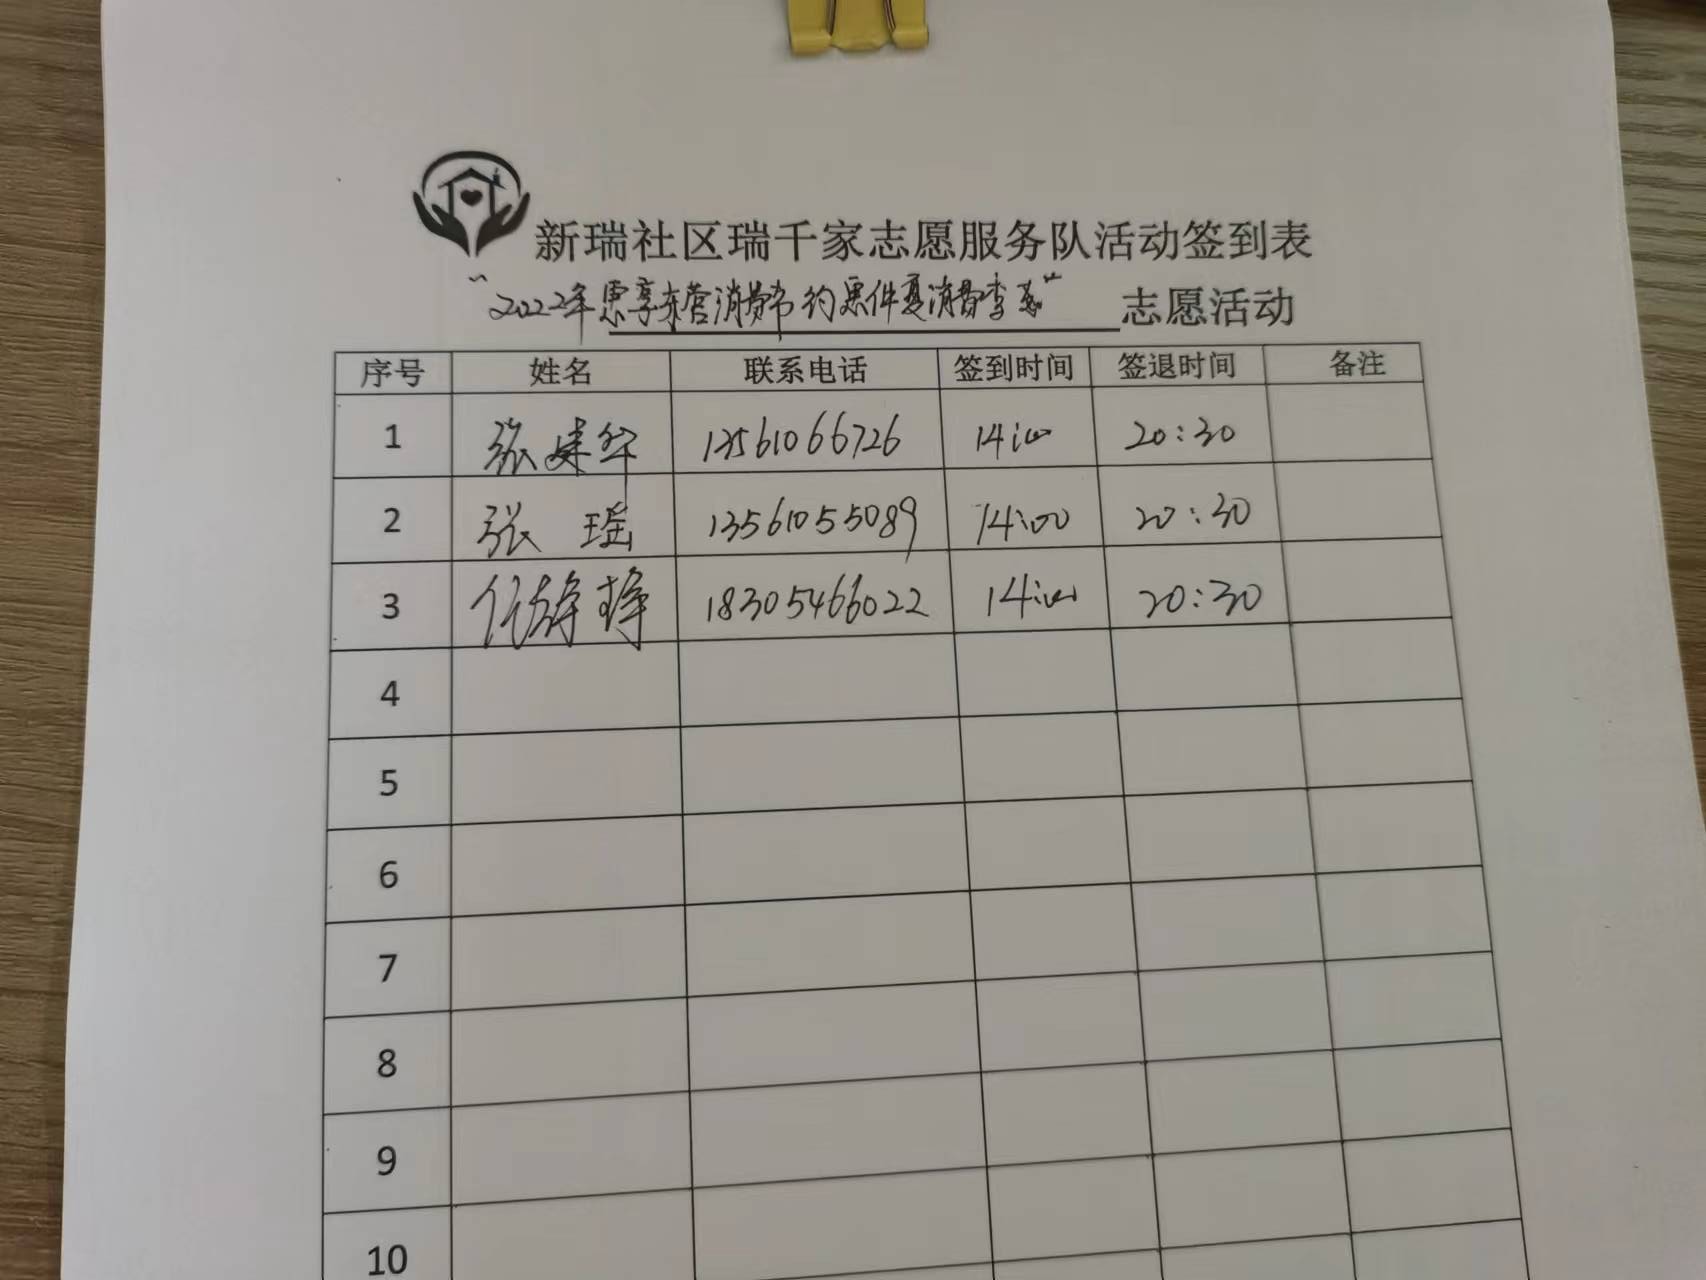 新瑞社区瑞千家志愿服务队活动签到表
"2022年惠享东营消费节约惠仲夏消费季惠" 志愿活动
序号 姓名 联系电话 签到时间 签退时间 备注
1 张建华 13561066726 14:00 20:30
2 张 瑶 13561055089 14:00 20:30
3 任 18305466022 14:00 20:30
4
5
6
7
8
9
10